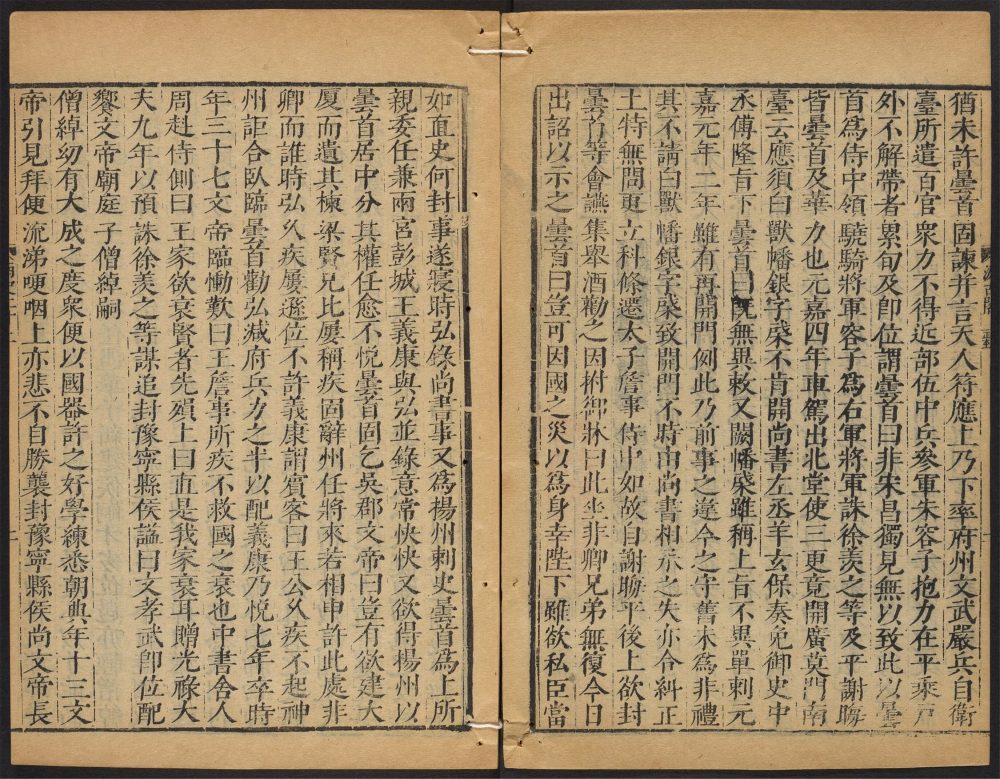 猶未許曇首固諫并言天人符應上乃下率府州文武嚴兵自衛
臺所遣百官衆力不得近部伍中兵參軍朱容子抱刀在平乘戶
外不解帶者累旬及即位謂曇首曰非宋昌獨見無以致此以曇
首爲侍中領驍騎將軍容子爲右軍將軍誅徐羨之等及平謝晦
皆曇首及華力也元嘉四年車駕出北堂使三更竟開廣莫門南
臺云應須白獸幡銀字棨不肯開尚書左丞羊玄保奏免御史中
丞傅隆旨下曇首曰旣無異敕又闕幡棨雖稱上旨不異單刺元
嘉元年二年雖有再開門例此乃前事之違今之守舊未爲非禮
其不請白獸幡銀字棨致開門不時由尚書相承之失亦合糾正
上特無問更立科條遷太子詹事侍中如故自謝晦平後上欲封
曇首等會讌集舉酒勸之因拊御牀曰此坐非卿兄弟無復今日
出詔以示之曇首曰豈可因國之災以爲身幸陛下雖欲私臣當
如直史何封事遂寢時弘錄尚書事又爲楊州刺史曇首爲上所
親委任兼兩宮彭城王義康與弘並錄意常怏怏又欲得楊州以
曇首居中分其權任愈不悅曇首固乞吳郡文帝曰豈有欲建大
厦而遺其棟梁賢兄比屢稱疾固辭州任將來若相申許此處非
卿而誰時弘久疾屢遜位不許義康謂賓客曰王公久疾不起神
州詎合臥臨曇首勸弘減府兵力之半以配義康乃悅七年卒時
年三十七文帝臨慟歎曰王詹事所疾不救國之衰也中書舍人
周赳侍側曰王家欲衰賢者先殞上曰直是我家衰耳贈光祿大
夫九年以預誅徐羨之等謀追封豫寧縣侯謚曰文孝武即位配
饗文帝廟庭子僧綽嗣
僧綽幼有大成之度衆便以國器許之好學練悉朝典年十三文
帝引見拜便流涕哽咽上亦悲不自勝襲封豫寧縣侯尚文帝長